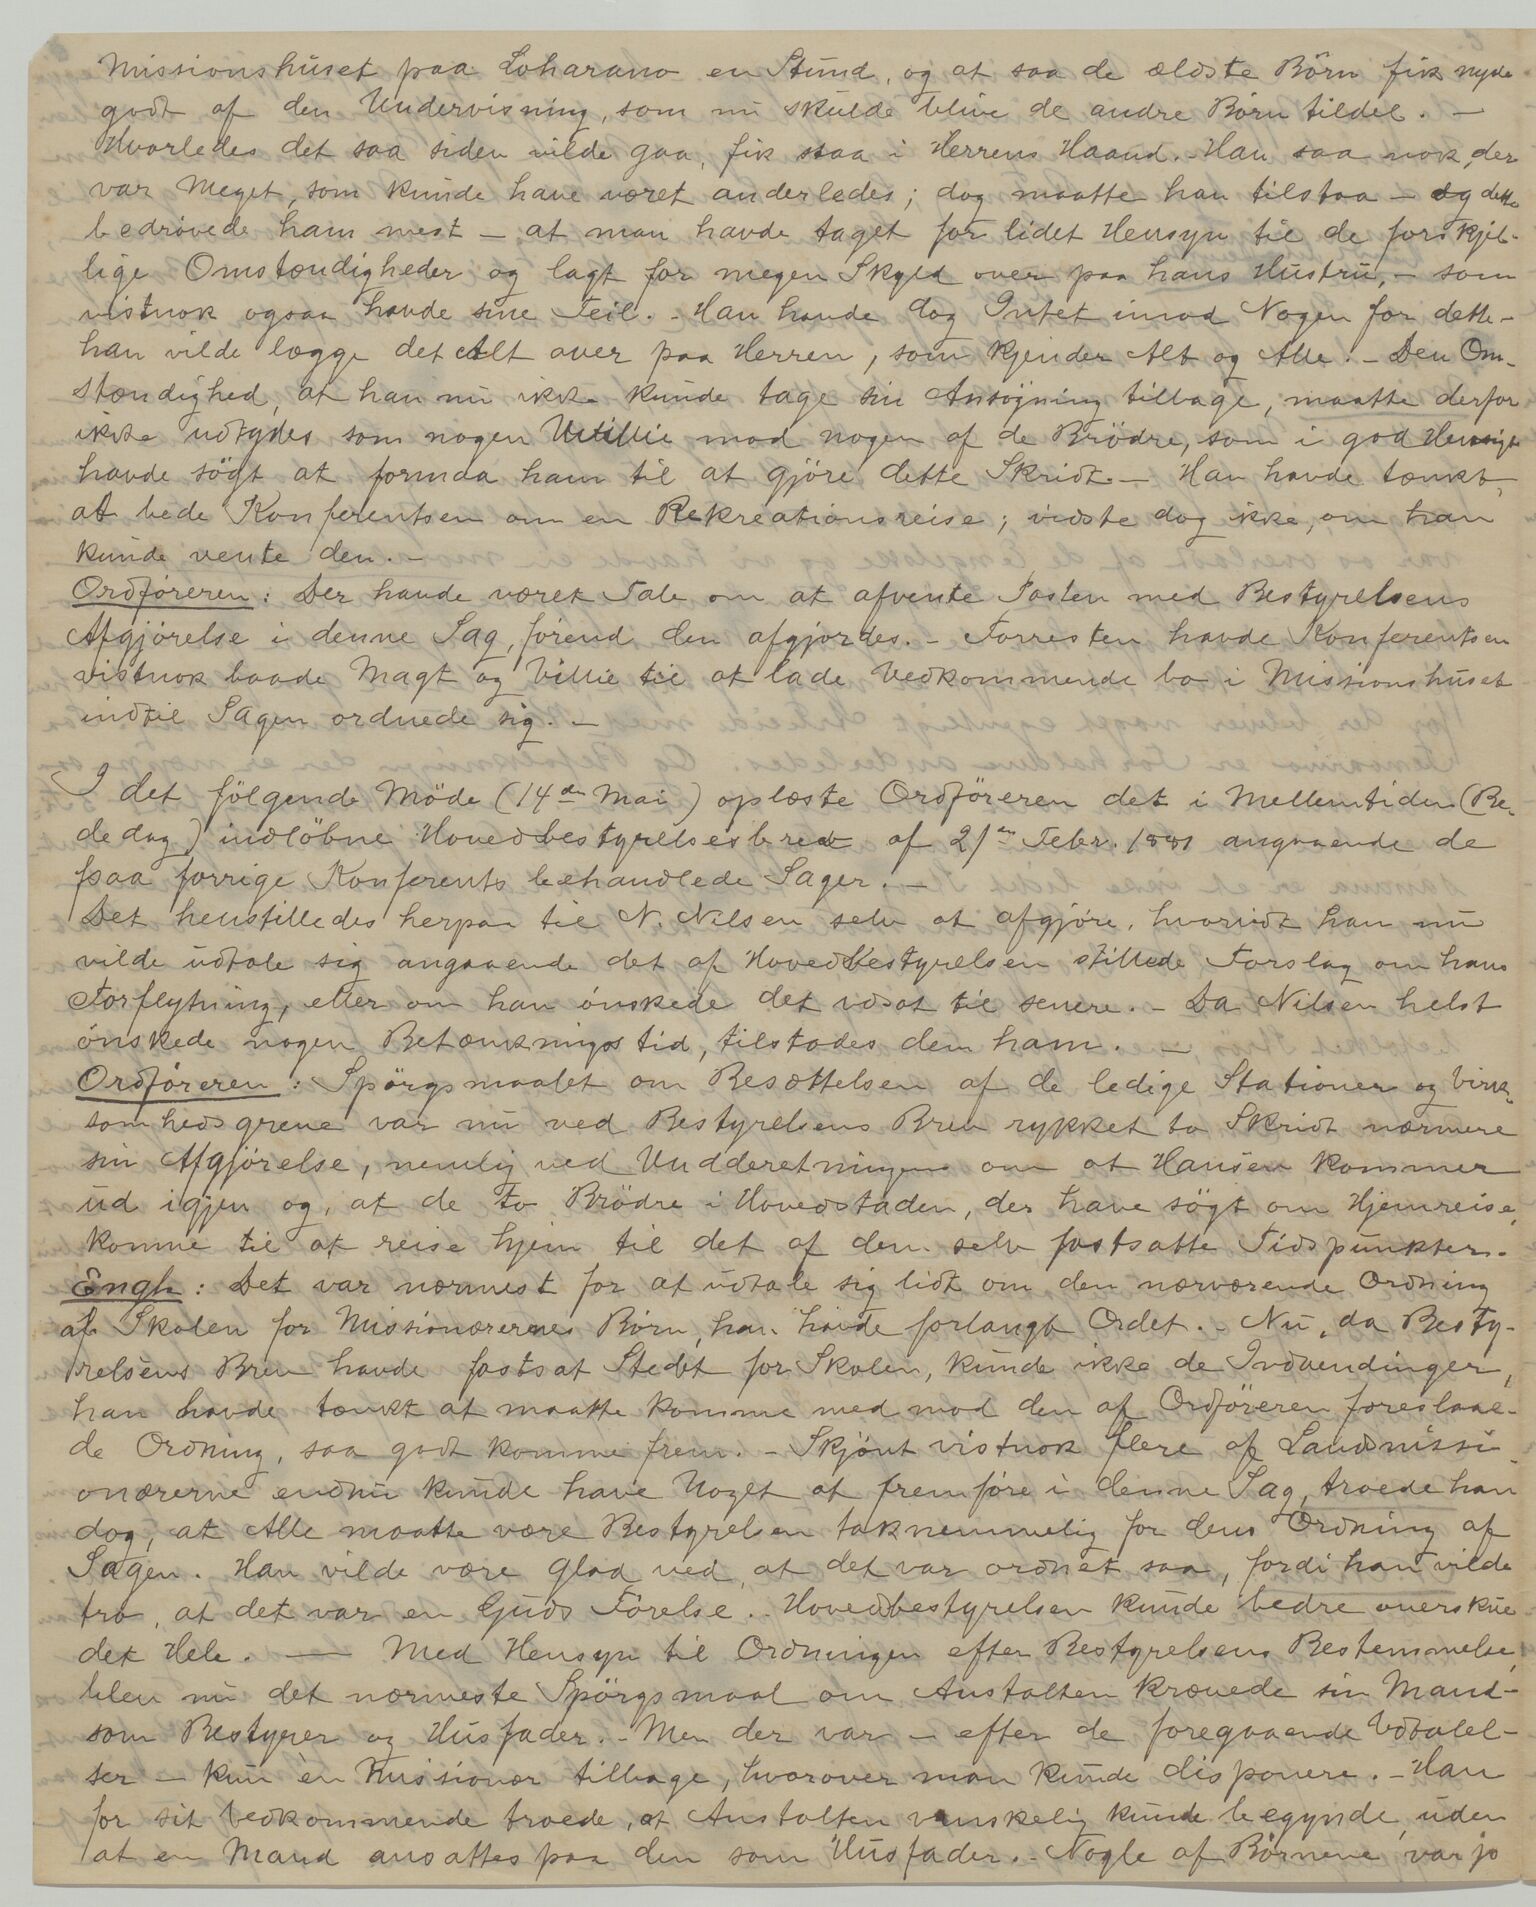 Missionshuset paa Loharano en Stund, og at saa de ældste Börn fik nyde
godt af den Undervisning, som nu skulde blive de andre Börn tildel. —
Hvorledes det saa siden vilde gaa, fik staa i Herrens Haand. - Han saa nok, der
var Meget, som kunde have været anderledes; dog maatte han tilstaa — og dette
bedrövede ham mest — at man havde taget for lidet Hensyn til de forskjel-
lige Omstændigheder og lagt for megen Skyld over paa hans Hustru, - som
vistnok ogsaa havde sine Feil. - Han havde dog Intet imod Nogen for dette -
han vilde lægge det Alt over paa Herren, som kjender Alt og Alle. - Den Om-
stændighed, at han nu ikke kunde tage sin Ansögning tilbage, maatte derfor
ikke udtydes som nogen Uvillie mod nogen af de Brödre, som i god Hensigt
havde sögt at formaa ham til at gjöre dette Skridt. — Han havde tænkt,
at bede Konferentsen om en Rekreationsreise; vidste dog ikke, om han
kunde vente den. —
Ordföreren: Der havde været Tale om at afvente Posten med Bestyrelsens
Afgjörelse i denne Sag, förend den afgjordes. - Forresten havde Konferentsen
vistnok baade Magt og Villie til at lade Vedkommende bo i Missionshuset
indtil Sagen ordnede sig. —
I det fölgende Möde (14de Mai) oplæste Ordföreren det i Mellemtiden (Be-
dedag) indlöbne Hovedbestyrelsesbrev af 21de Febr. 1881 angaaende de
paa forrige Konferents behandlede Sager. —
Det henstilledes herpaa til N. Nilsen selv at afgjöre, hvorvidt han nu
vilde udtale sig angaaende det af Hovedbestyrelsen stillede Forslag om hans
Forflytning, eller om han önskede det udsat til senere. - Da Nilsen helst
önskede nogen Betænkningstid, tilstodes den ham. —
Ordföreren: Spörgsmaalet om Besættelsen af de ledige Stationer og Virk-
somhedsgrene var nu ved Bestyrelsens Brev rykket to Skridt nærmere
sin Afgjörelse, nemlig ved Underretningen om at Hansen kommer
ud igjen og, at de to Brödre i Hovedstaden, der have sögt om Hjemreise,
komme til at reise hjem til det af dem selv fastsatte Tidspunkter.
Engh: Det var nærmest for at udtale sig lidt om den nærværende Ordning
af Skolen for Missionærernes Börn, han havde forlangt Ordet. - Nu, da Besty-
relsens Brev havde fastsat Stedet for Skolen, kunde ikke de Indvendinger,
han havde tænkt at maatte komme med mod den af Ordföreren foreslaae-
de Ordning, saa godt komme frem. - Skjönt vistnok flere af Landsmissi-
onærerne endnu kunde have Noget at fremföre i denne Sag, troede han
dog, at Alle maatte være Bestyrelsen taknemmelig for dens Ordning af
Sagen. Han vilde være glad ved, at det var ordnet saa, fordi han vilde
tro, at det var en Guds Förelse. - Hovedbestyrelsen kunde bedre overskue
det Hele. — Med Hensyn til Ordningen efter Bestyrelsens Bestemmelse,
blev nu det nærmeste Spörgsmaal om Anstalten krævede sin Mand -
som Bestyrer og Husfader. - Men der var — efter de foregaaende Udtalel-
ser — kun èn Missionær tilbage, hvorover man kunde disponere. - Han
for sit Vedkommende troede, at Anstalten vanskelig kunde begynde, uden
at en Mand ansattes paa den som Husfader. - Nogle af Börnene var jo